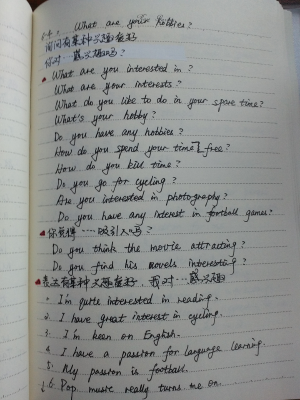 6.4. What are your hobbies?
询问有某种兴趣爱好
你对…感兴趣吗?
What are you interested in?
What are your interests?
What do you like to do in your spare time?
What's your hobby?
Do you have any hobbies?
How do you spend your time free?
How do you kill time?
Do you go for cycling?
Are you interested in photography?
Do you have any interest in football games?
你觉得…吸引人吗?
Do you think the movie attracting?
Do you find his novels interesting?
表示有某种兴趣爱好, 我对…感兴趣
1. I'm quite interested in reading.
2. I have great interest in cycling.
3. I'm keen on English.
4. I have a passion for language learning.
5. My passion is football.
6. Pop music really turns me on.